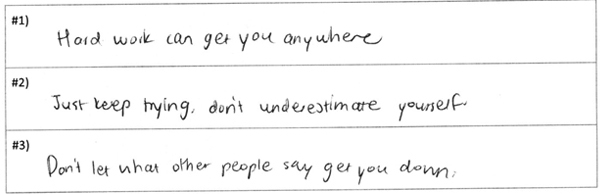 #1)
Hard work can get you anywhere
#2)
Just keep trying, don't underestimate yourself
#3)
Don't let what other people say get you down.